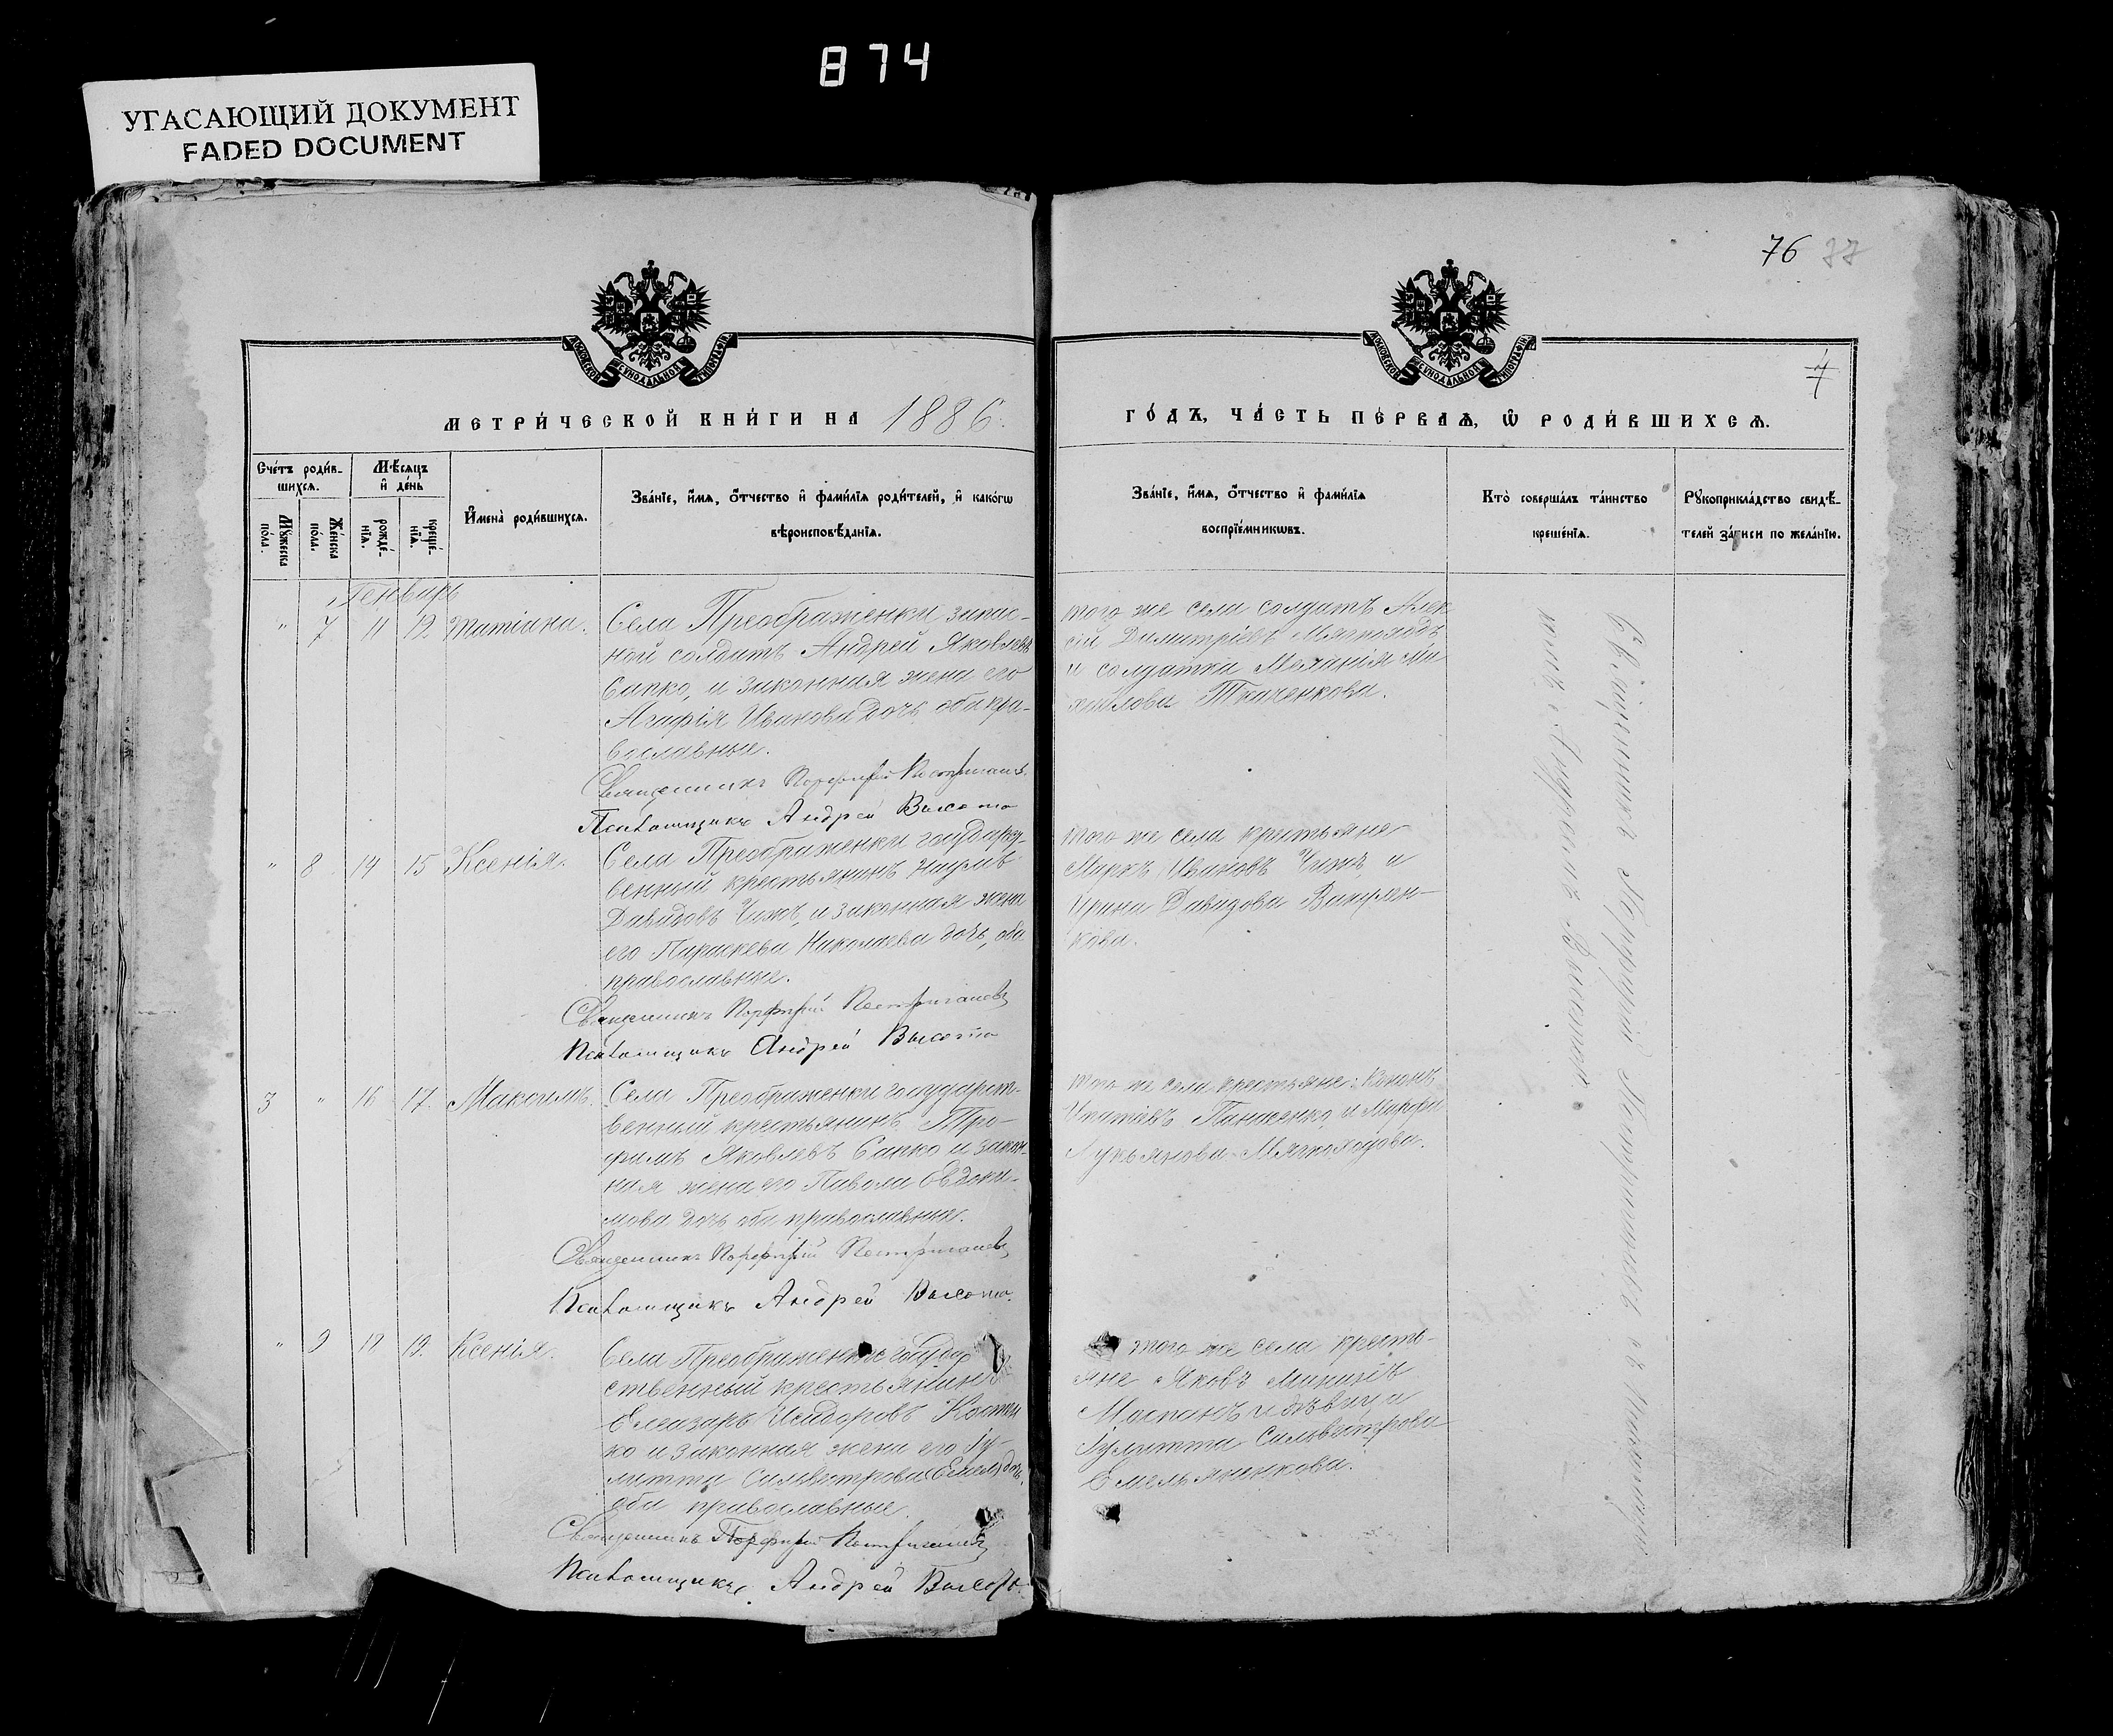 874
УГАСАЮЩИЙ ДОКУМЕНТ
FADED DOCUMENT
76 77
МОСКОВСКОЙ СѴНОДАЛЬНОЙ ТИПОГРАФІИ
МОСКОВСКОЙ СѴНОДАЛЬНОЙ ТИПОГРАФІИ
7
МЕТРИ́ЧЕСКОЙ КНИ́ГИ НА 1886.
ГО́ДЪ, ЧА́СТЬ ПЕ́РВАѦ, Ѿ РОДИ́ВШИХСѦ.
Сче́тъ роди́в-
шихсѧ.
Мꙋжеска по́ла.
Же́нска по́ла.
Мѣ́сѧцъ
и҆ де́нь
рожде́-
нїѧ.
креще́-
нїѧ.
И҆мена̀ роди́вшихсѧ.
Зва́нїе, и҆́мѧ, ѻ҆́тчество и҆ фами́лїѧ роди́телей, и҆ како́гѡ
вѣроисповѣ́данїѧ.
Зва́нїе, и҆́мѧ, ѻ҆́тчество и҆ фами́лїѧ
воспрїе́мникѡвъ.
Кто̀ соверша́лъ та́инство
креще́нїѧ.
Рꙋкоприкла́дство свидѣ́-
телей за́писи по жела́нїю.
Генварь
" 7 11 12 Татіана.
Села Преображенки запас-
ной солдатъ Андрей Яковлевъ
Сапко, и законная жена его
Агафія Иванова дочь, оба пра-
вославные.
Священникъ Порфирій
Псаломщикъ Андрей Высота
того же села солдатъ Алек
сій Димитріевъ Мягкоходъ
и солдатка Меланія Ми
хайлова Ткаченкова.
" 8 14 15 Ксенія.
Села Преображенки государс-
венный крестьянинъ
Давидовъ Чижъ, и законная жена
его Параскева Николаева дочь, оба
православные.
Священникъ Порфирій
Псаломщикъ Андрей Высота
того же села крестьяне
Маркъ Ивановъ Чижъ и
Ирина Давидова Вакулен-
кова.
3 " 16 17. Максимъ.
Села Преображенки государст-
венный крестьянинъ Тро-
фимъ Яковлевъ Сапко и закон-
ная жена его Павола Евдоки-
мова дочь оба православные.
Священникъ Порфирій
Псаломщикъ Андрей Высота.
того же села крестьяне: Кононъ
Ипатіевъ Панасенко, и Марфа
Лукьянова Мягкоходова.
" 9 18 19. Ксенія.
Села Преображенки государ
ственный крестьянинъ
Елеазаръ Исидоровъ Костен
ко и законная жена его Іу-
литта Сильвестрова дочь,
оба православные.
Священникъ Порфирій
Псаломщикъ Андрей Высота.
того же села кресть-
яне Яковъ
Моспанъ и дѣвица
Іулитта Сильвестрова
Емельяненкова.
Священникъ Порфирій с Псаломщи
комъ Андреемъ Высотою.